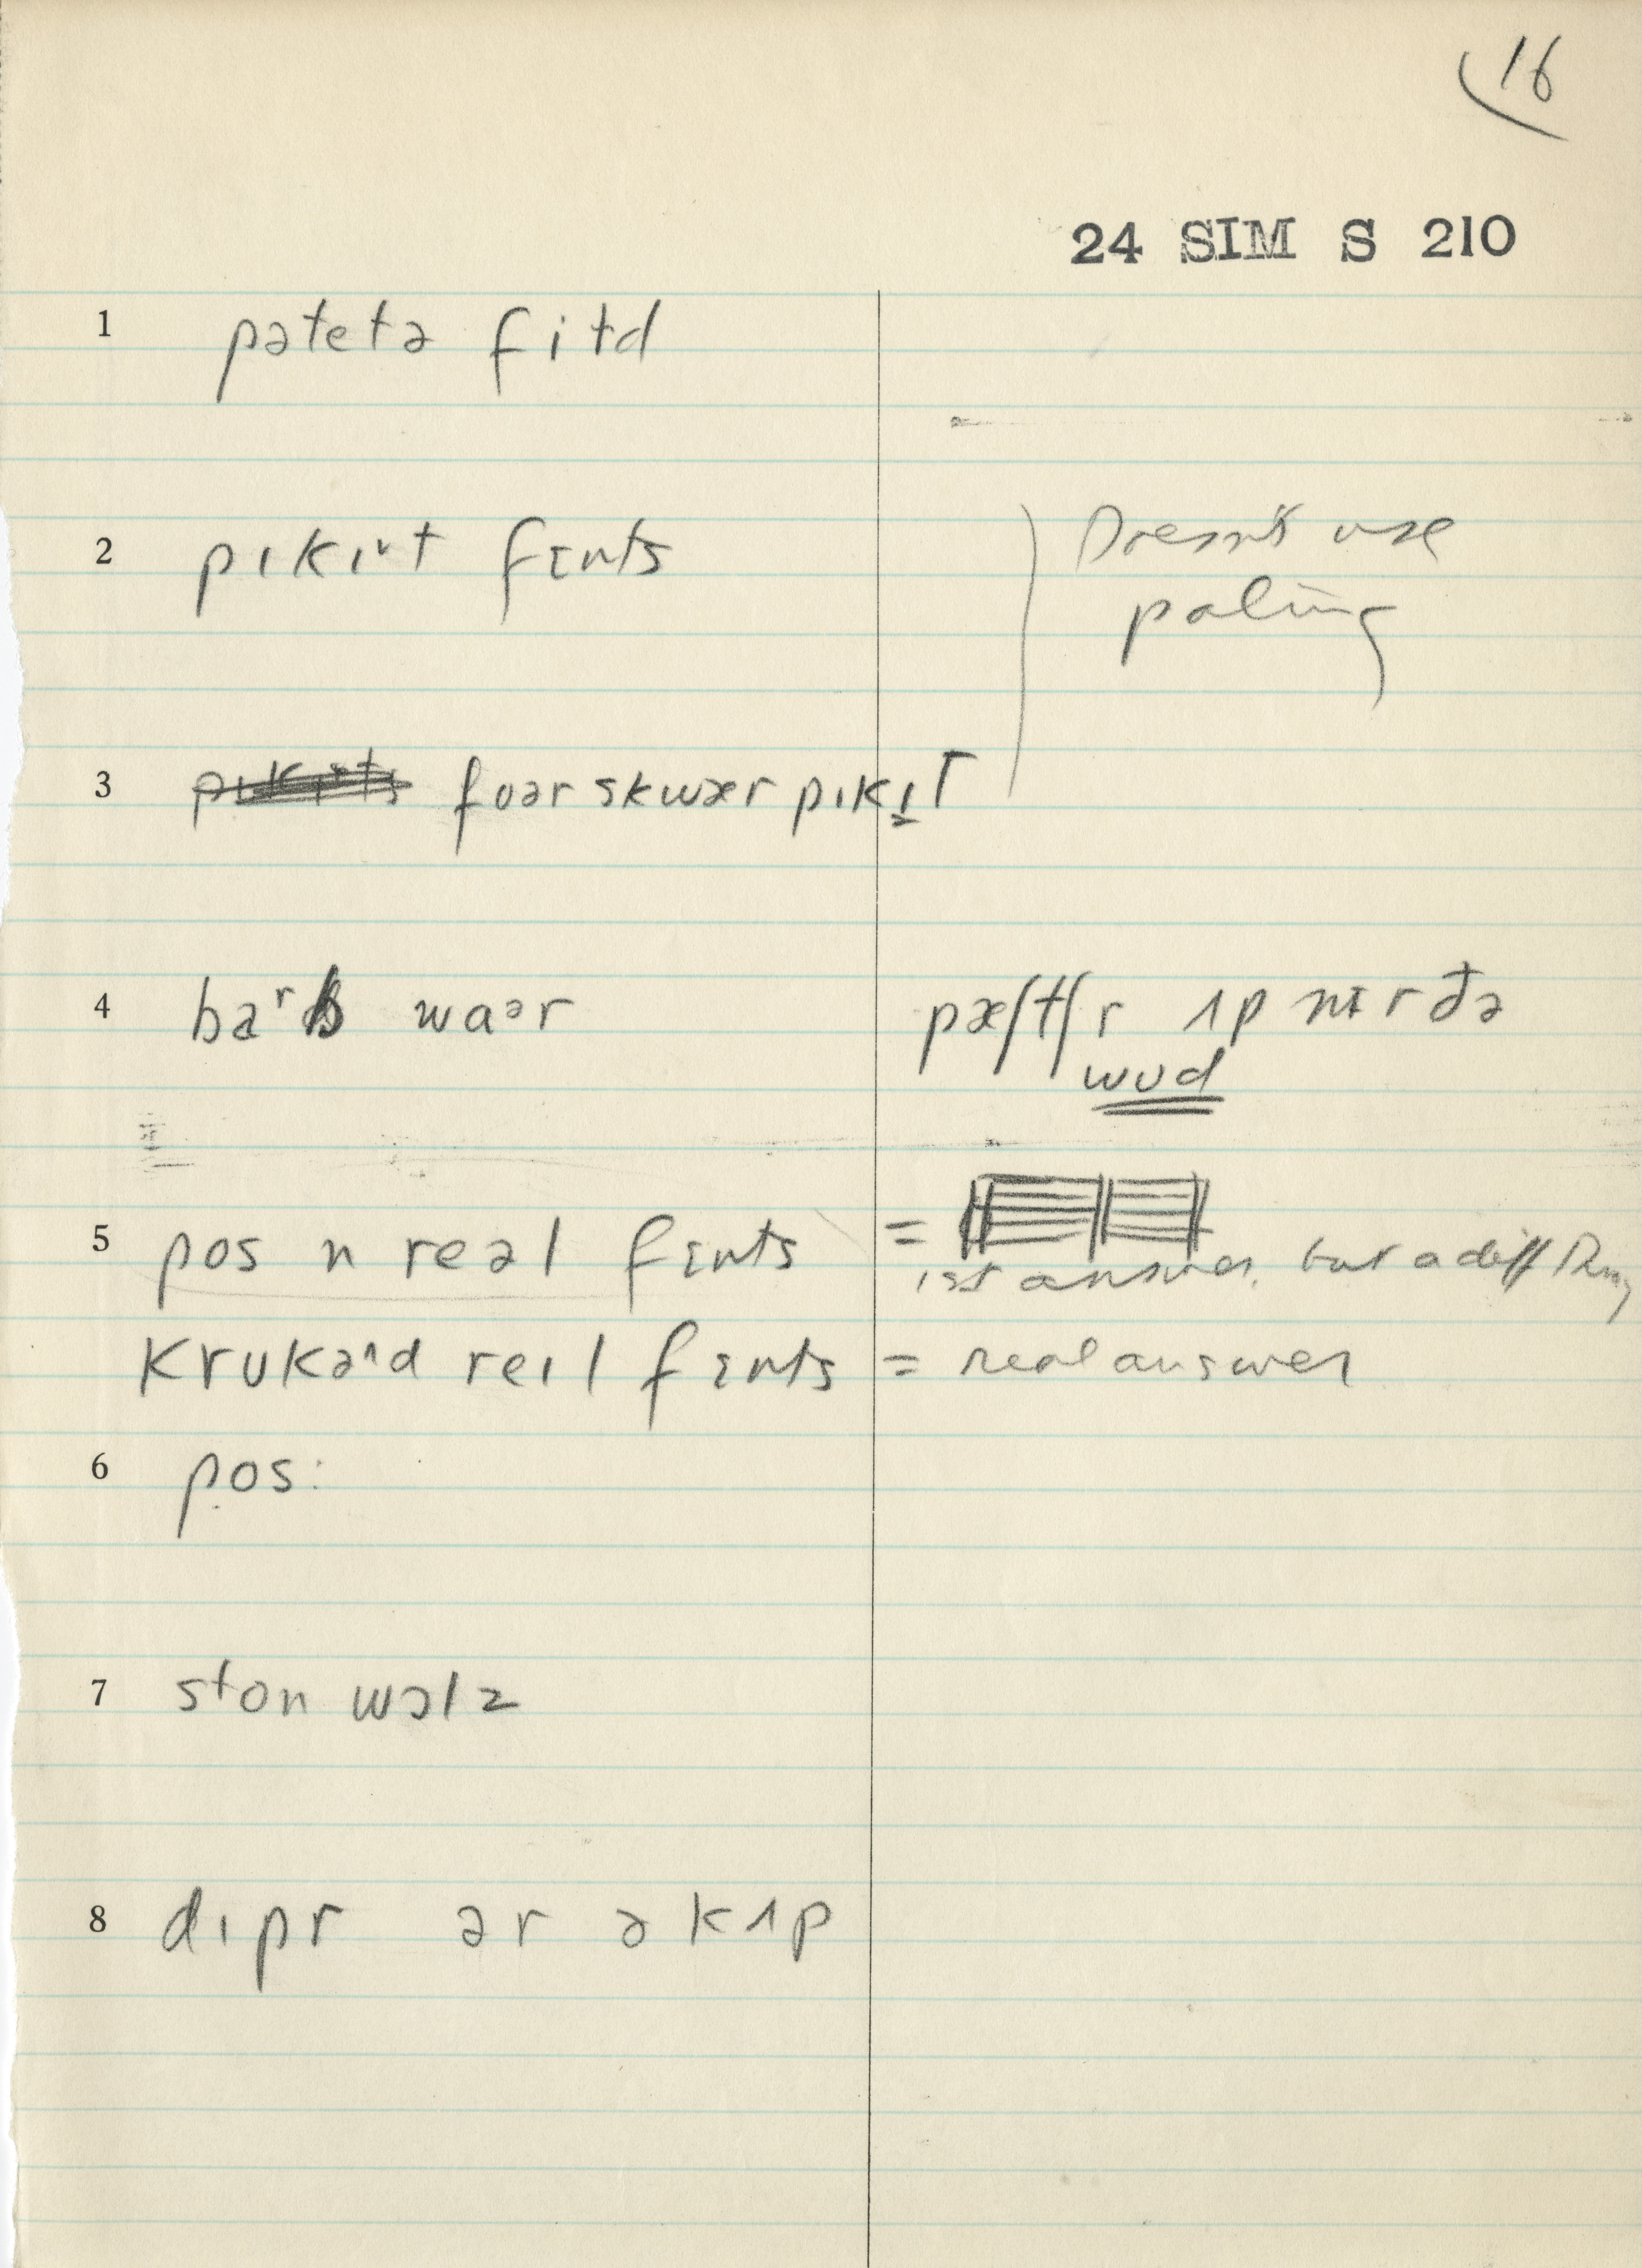 16
24 SIM S 210
1 pəteta fitd
2 pɪkɪt fɛnts
Doesn't use
paling
3 foər skwær pɪkɪt
4 baʳb waər
pæʃtʃr ʌp nɪr ðə
wud
5 pos n reəl fɛnts =
ist answer, but a diff
krukəd reɪl fɛnts = real answer
6 pos:
7 ston wɔlz
8 dɪpr ər ə kʌp